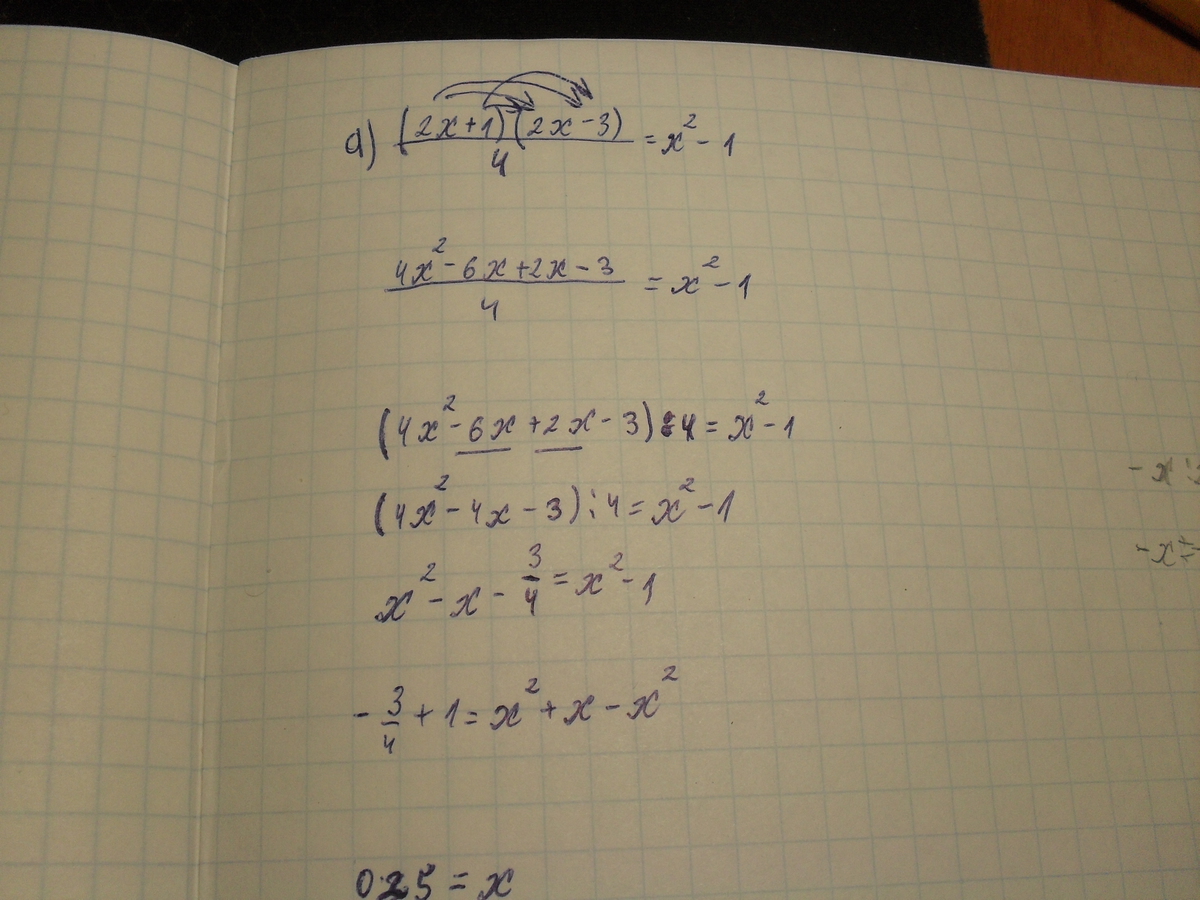 а) (2x+1)(2x-3)/4 = x²-1
4x²-6x+2x-3/4 = x²-1
(4x²-6x+2x-3):4=x²-1
(4x²-4x-3):4=x²-1
x²-x-3/4=x²-1
-3/4+1=x²+x-x²
0.25=x
-x
-x+